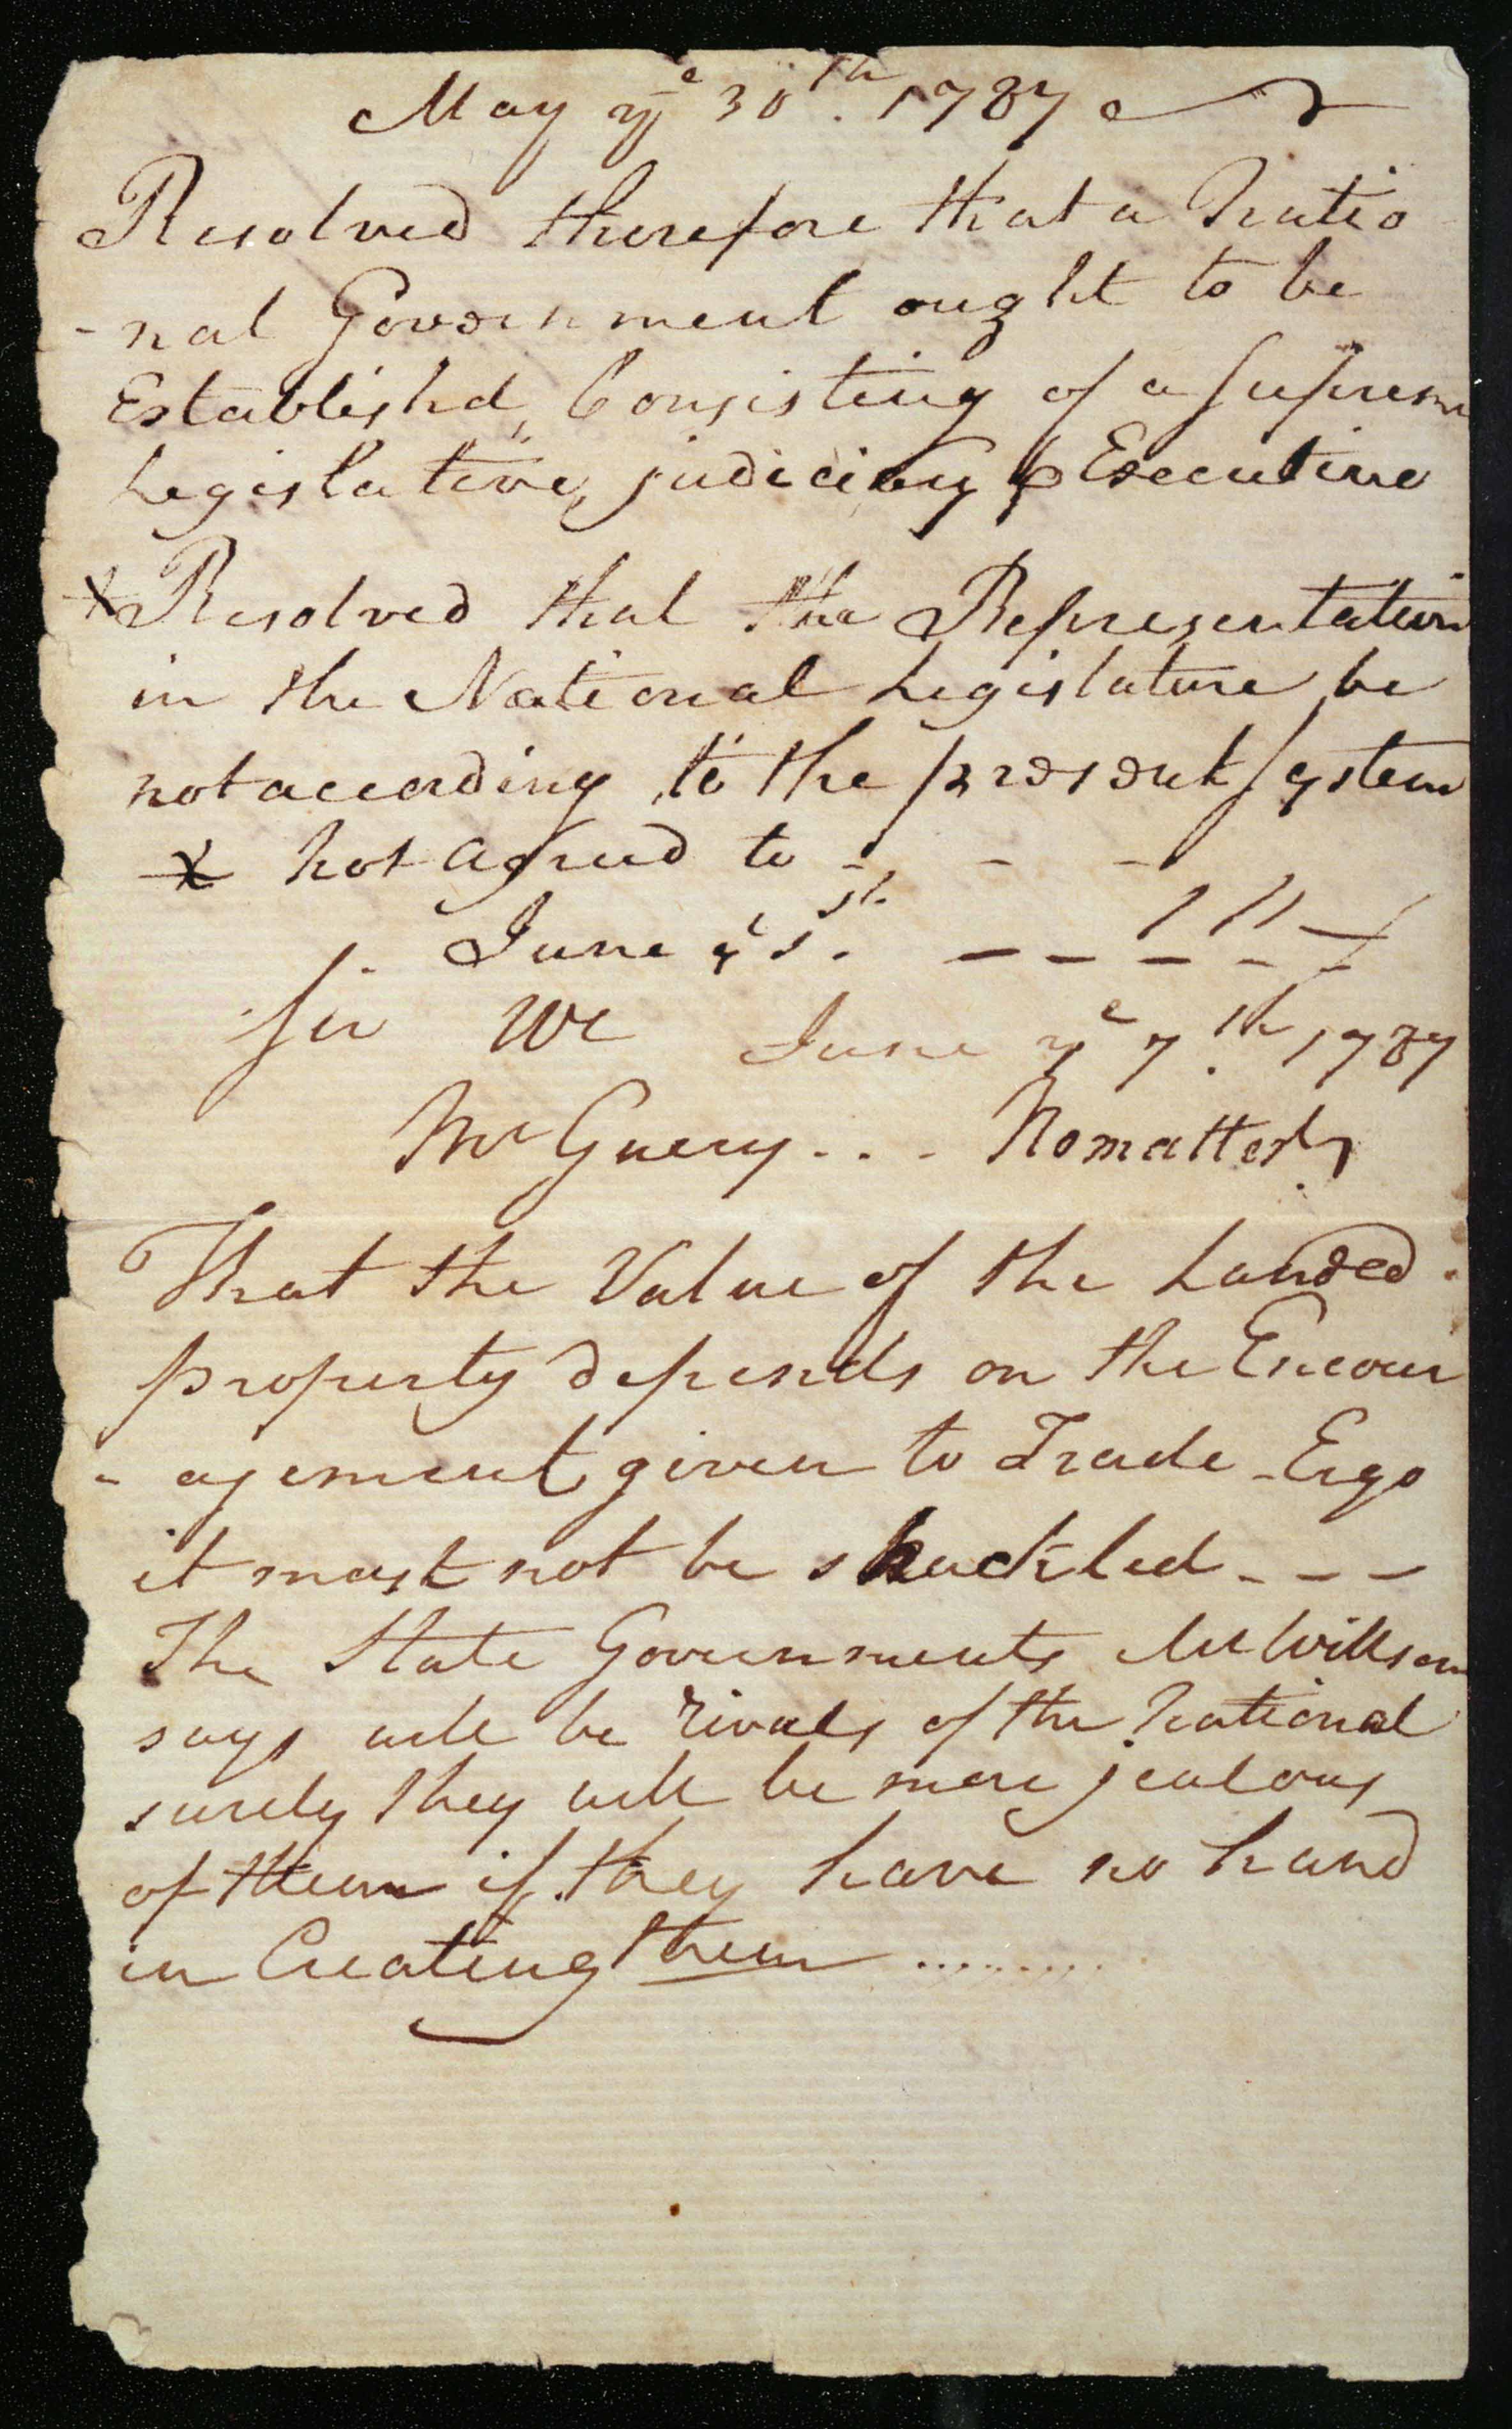 May yᵉ 30ᵗʰ. 1787
Resolved therefore that a Natio
-nal Government ought to be
Established, Consisting of a supreme
Legislative, judiciary & Executive
* Resolved that the Representation
in the National Legislature be
not according to the present system
* not agreed to - - -
June yᵉ 1ˢᵗ.
Sir We June yᵉ 7.ᵗʰ 1787
Mr Guery . . . No matter
That the Value of the Landed
property depends on the Encour
- agement given to Trade - Ergo
it must not be shackled - - -
The State Governments Mr Willson
says will be rivals of the National
surely they will be more jealous
of them if they have no hand
in Creating them .........